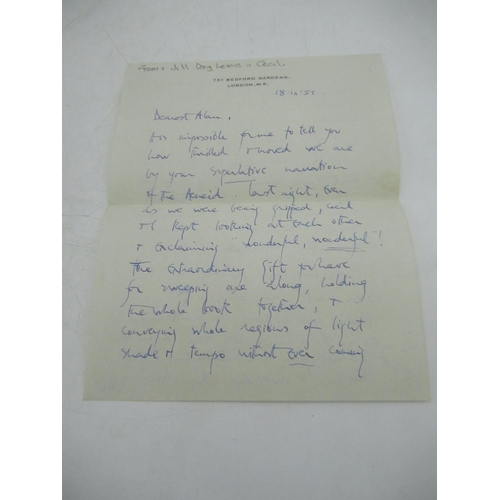 from Jill Day Lewis & Cecil
BEDFORD GARDENS,
LONDON, W.8.
Dearest Alan,
It is impossible for me to tell you
how thrilled & moved we are
by your superlative narration
of the Aeneid last night, Even
as we were being gripped, Cecil
& I kept looking at each other
& exclaiming wonderful, wonderful!
The extraordinary gift you have
for sweeping one along, holding
the whole book together, &
conveying whole regions of light
shade & tempo without ever